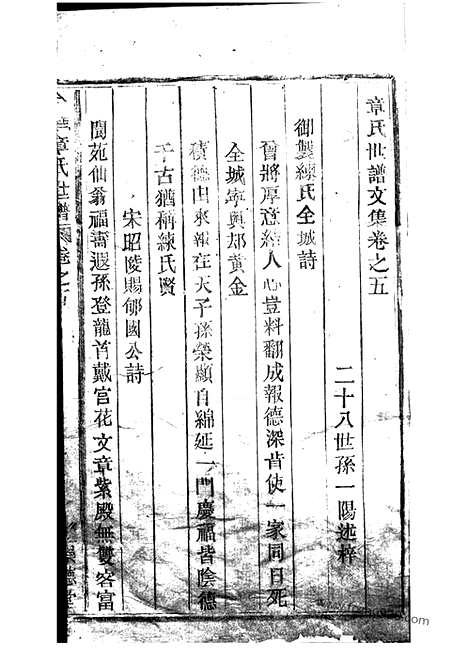 章氏世譜文集卷之五
二十八世孫一陽述梓
御製練氏全城詩
曾將厚意結人心豈料翻成報德深昔使一家同日死
全城寧與却黄金
積德由來報在天子孫榮顯自綿延一門慶福皆陰德
千古猶稱練氏賢
宋昭陵賜郇國公詩
閬苑仙翁福壽遐孫登龍首戴宮花文章紫殿無雙客富
章氏世譜 卷之五
德堂